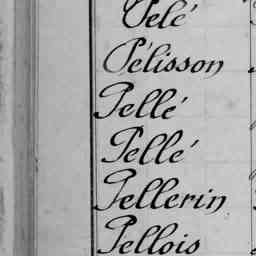 Pelé
Pélisson
Pellé
Pellé
Pellerin
Pellois